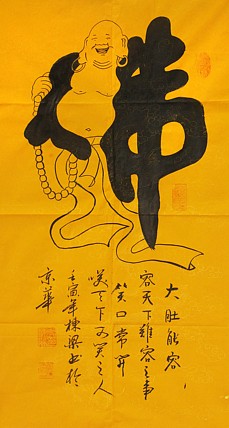 佛
大肚能容
容天下難容之事
笑口常開
咲天下可笑之人
壬寅年棟梁書於
京華